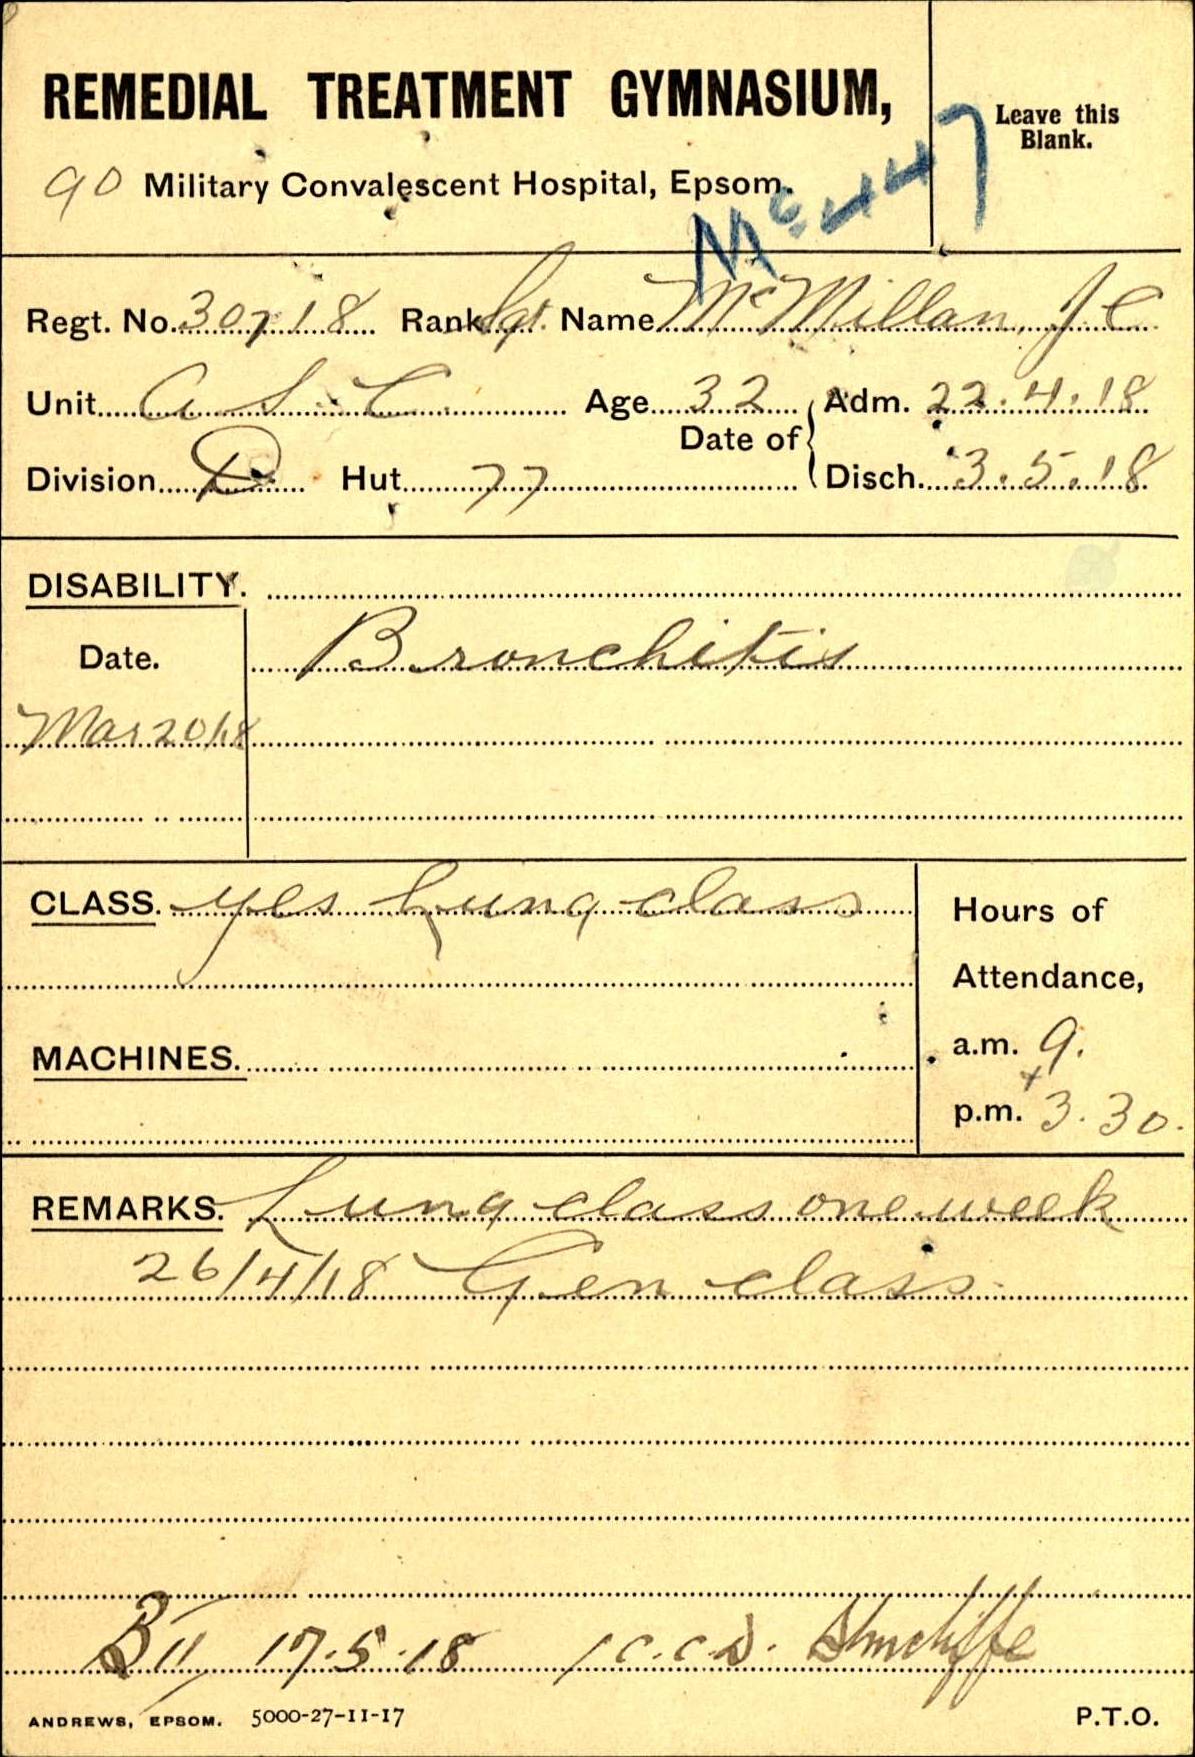 REMEDIAL TREATMENT GYMNASIUM,
Leave this
Blank.
90 Military Convalescent Hospital, Epsom.
Mc 447
Regt. No. 30718 Rank Sgt. Name McMillan, J C
Unit A S C Age 32 Date of Adm. 22.4.18
Division D Hut 77 Disch. 3.5.18
DISABILITY.
Date. Bronchitis
Mar 20/18
CLASS. yes Lung class
Hours of
Attendance,
MACHINES.
a.m. 9.
+
p.m. 3.30.
REMARKS. Lung class one week
26/4/18 Gen class
B II 17.5.18 1 C.C.D. Shncliffe
ANDREWS, EPSOM. 5000-27-11-17 P.T.O.